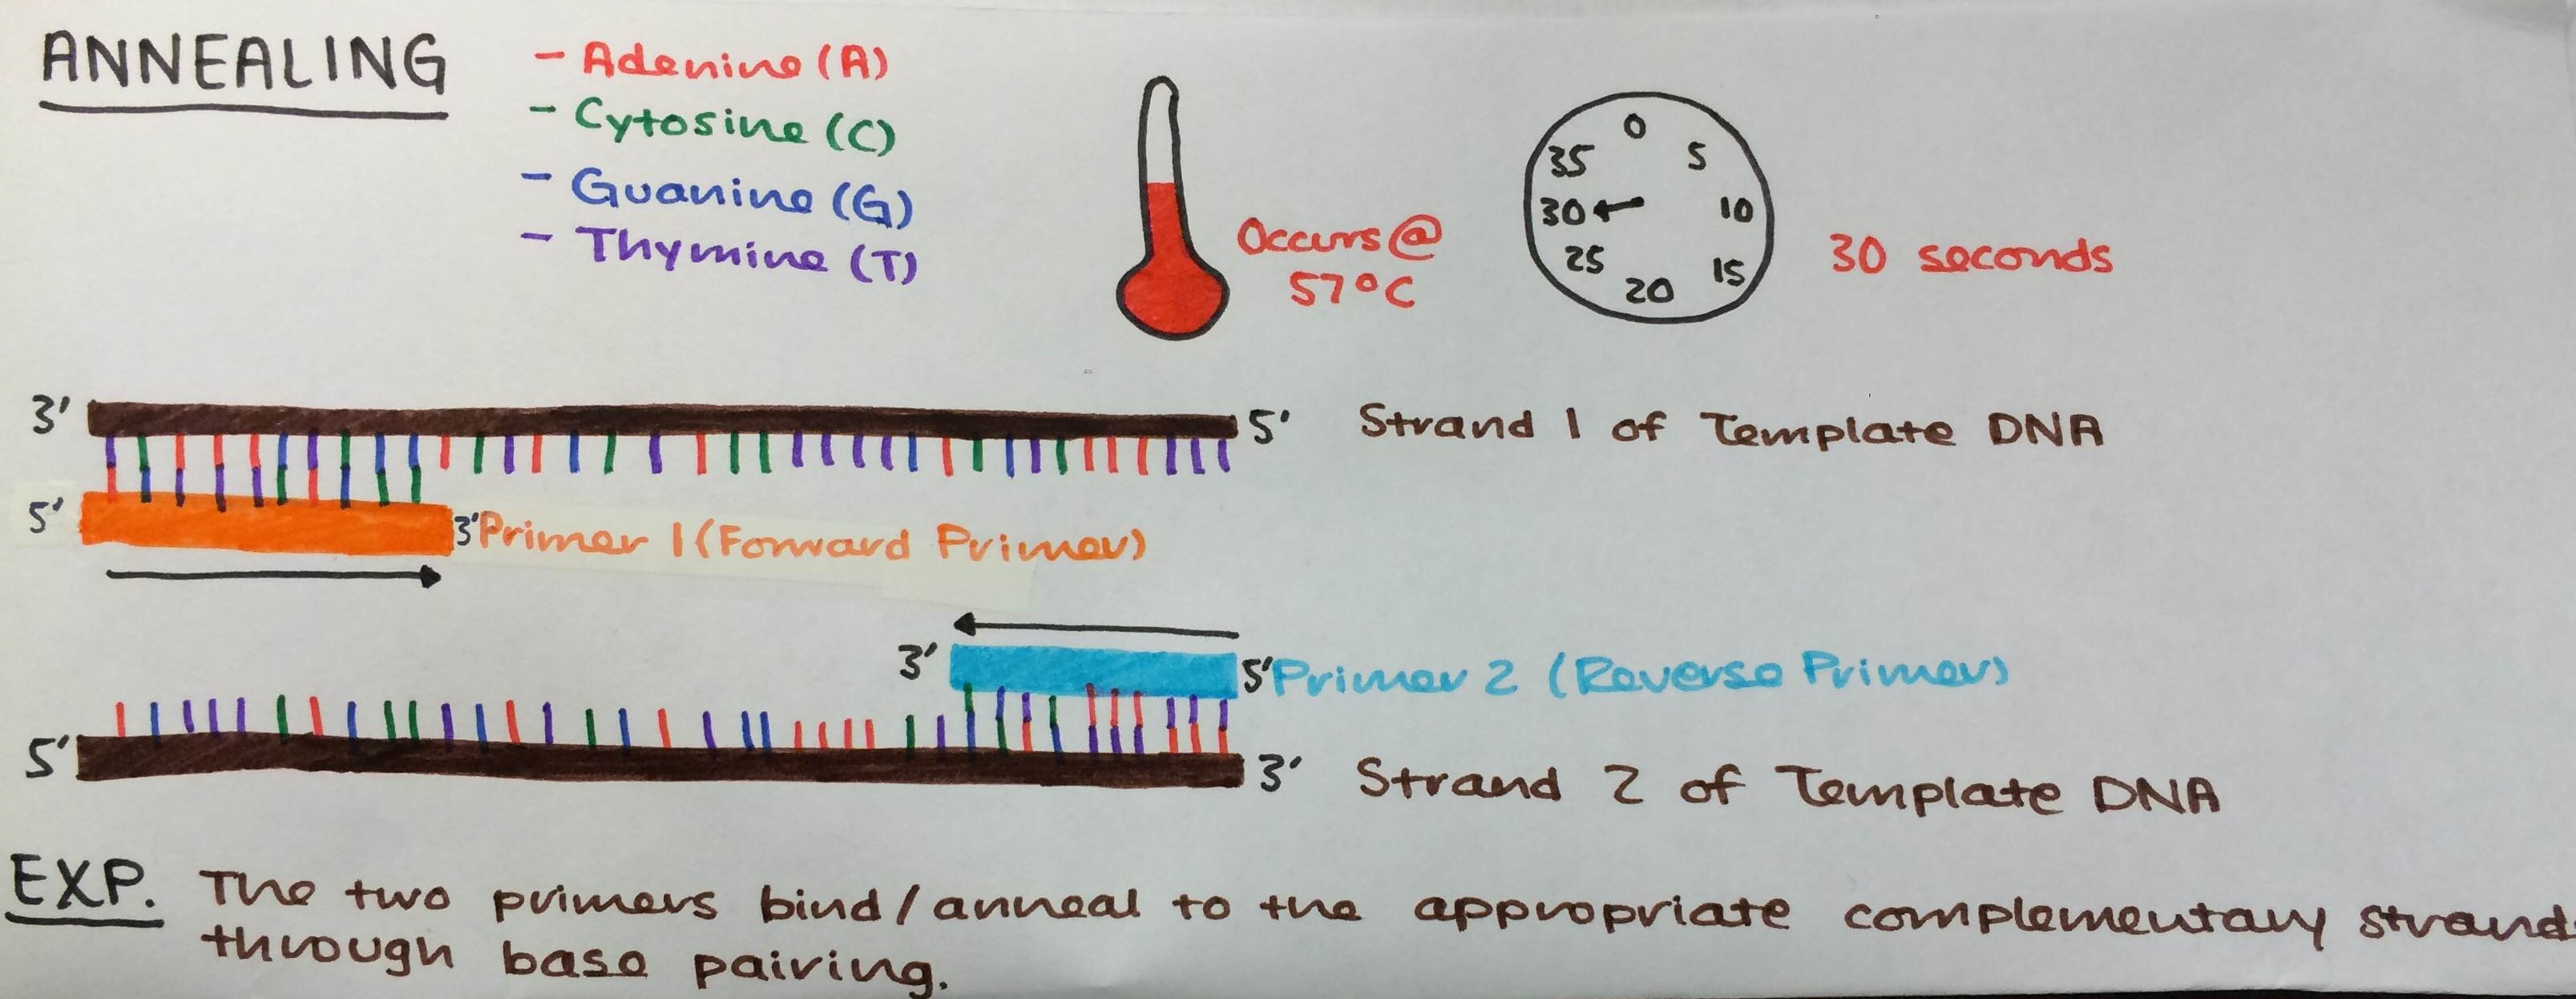 ANNEALING
- Adenine (A)
- Cytosine (C)
- Guanine (G)
- Thymine (T)
Occurs @
57°C
0
5
10
15
20
25
30
35
30 seconds
3' 5' Strand 1 of Template DNA
5' 3' Primer 1 (Forward Primer)
3' 5' Primer 2 (Reverse Primer)
5' 3' Strand 2 of Template DNA
EXP. The two primers bind/anneal to the appropriate complementary strand
through base pairing.